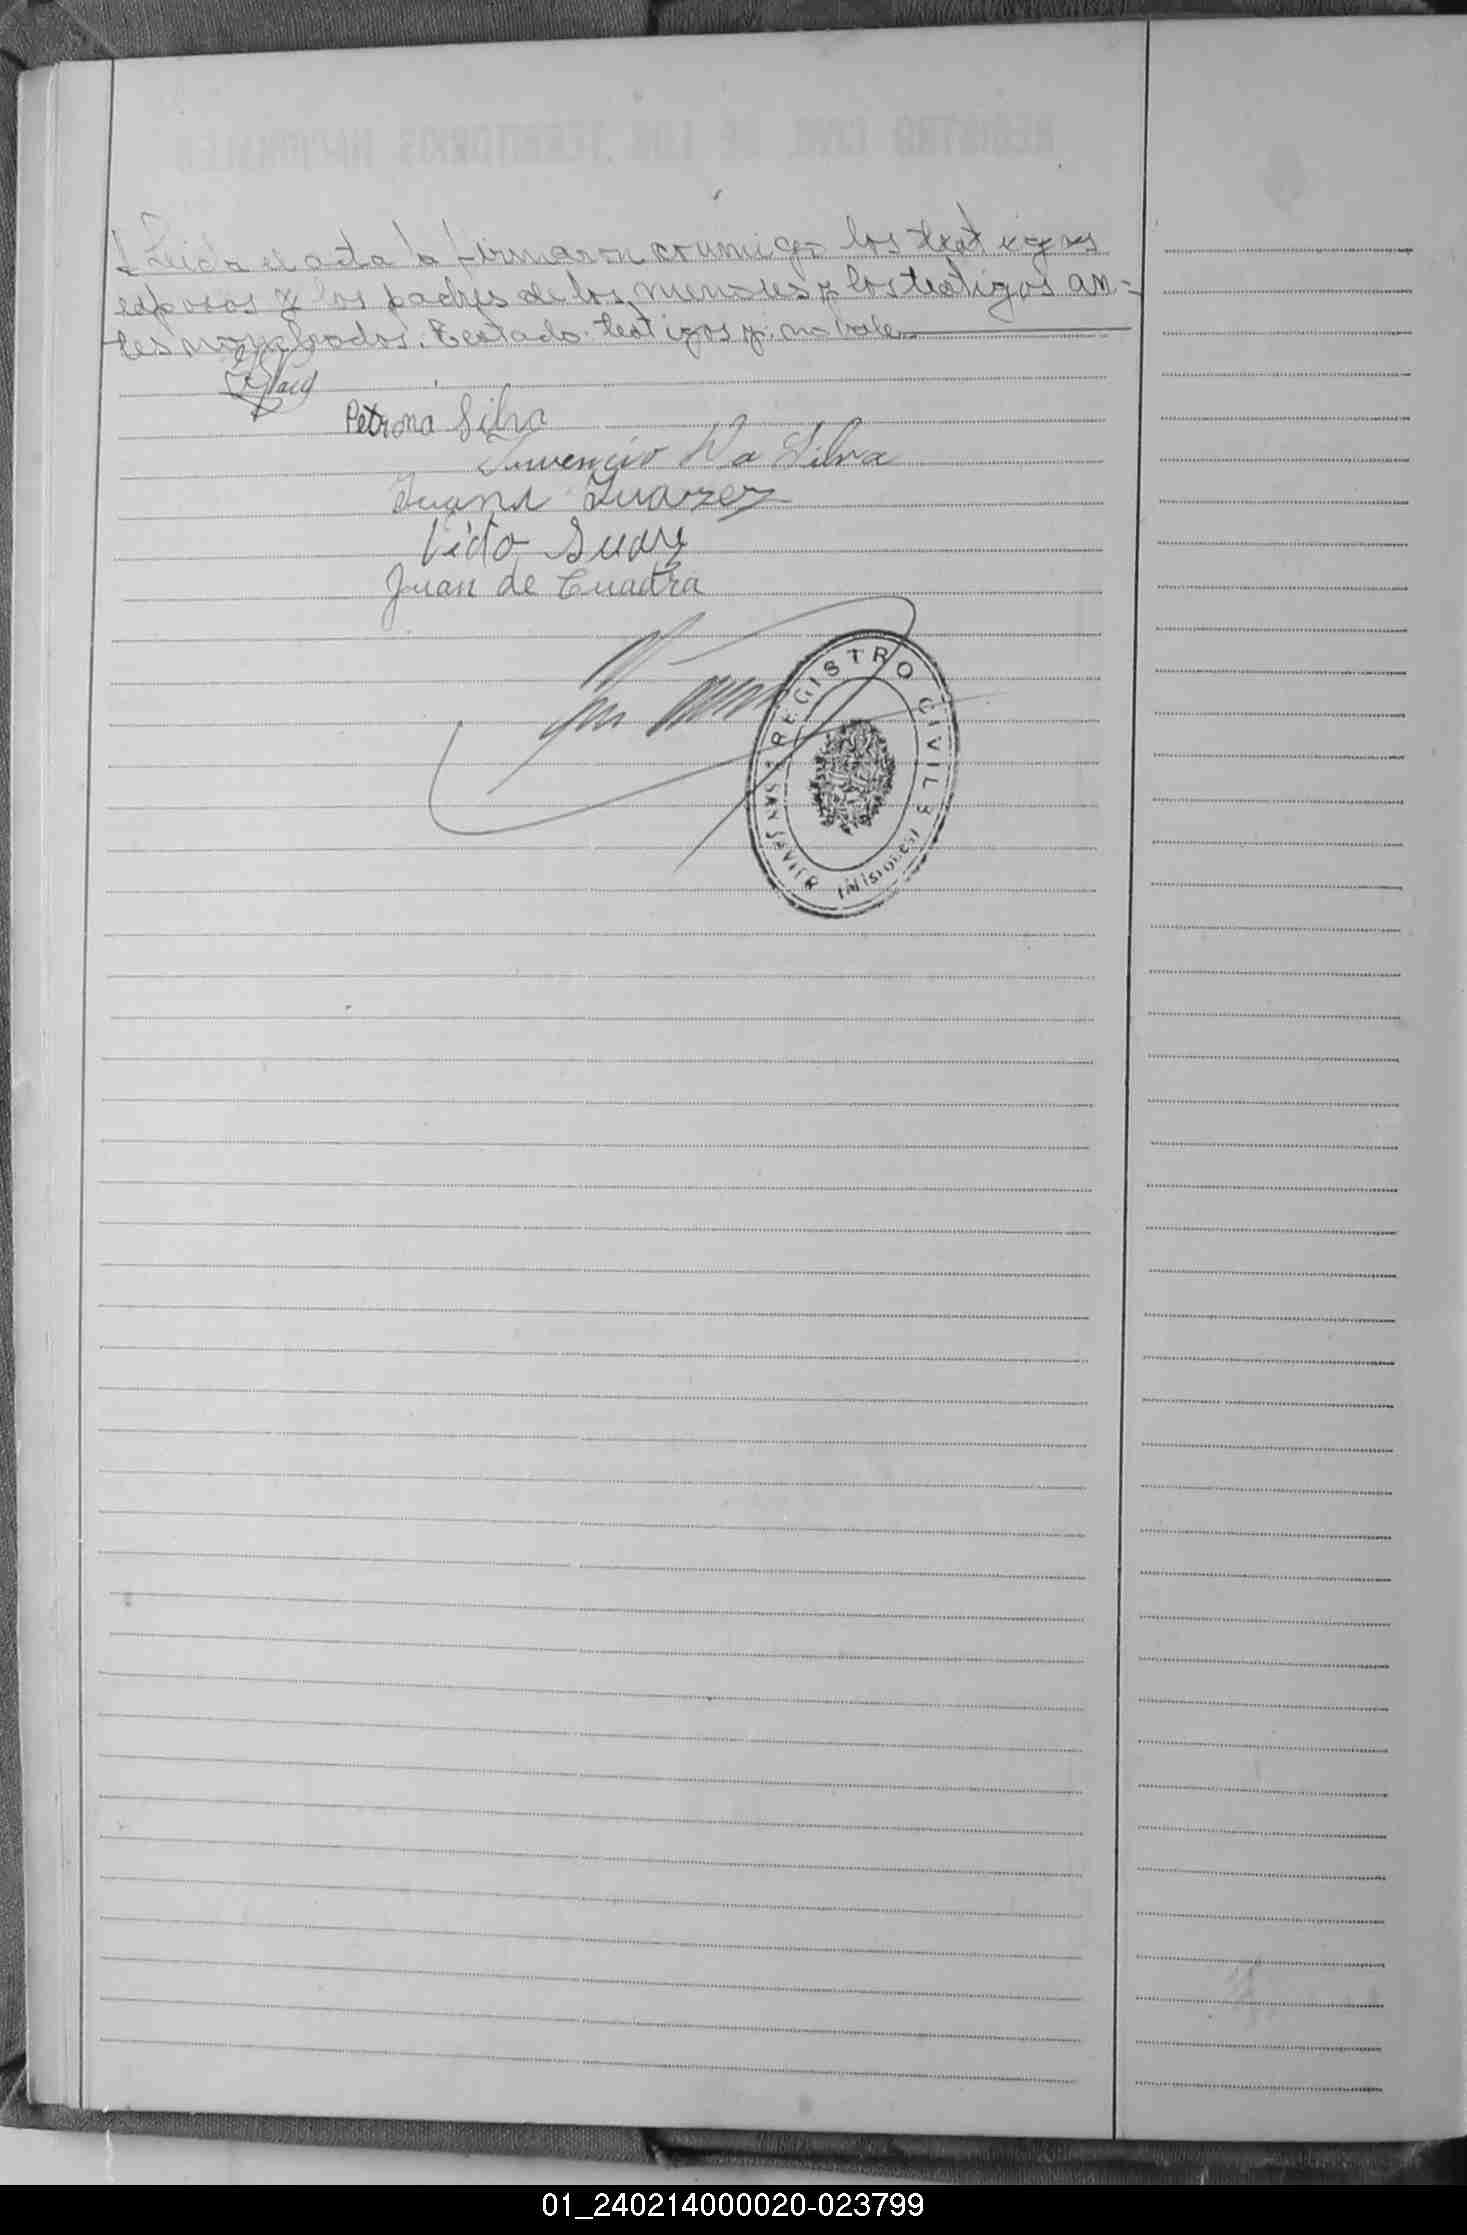 Leida el acta la firmaron conmigo los testigos
esposos y los padres de los menores y los testigos an=
tes nombrados. Testado: testigos y: no vale.
Petrona Silva
Juvencio Da Silva
Juana Suarez
Vito Suarez
Juan de Cuadra
REGISTRO CIVIL
SAN JAVIER (MISIONES)
01_240214000020-023799